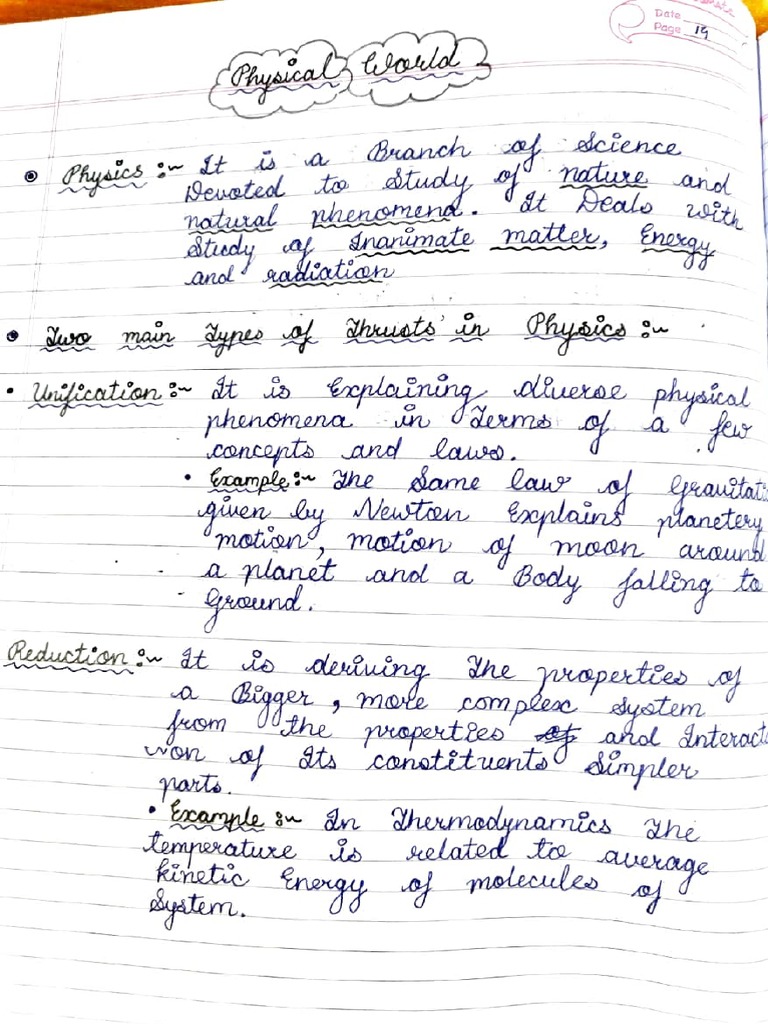 Date
Page 19
Physical World
Physics :~ It is a Branch of Science
Devoted to Study of nature and
natural phenomena. It Deals with
Study of Inanimate matter, Energy
and radiation
Two main Types of Thrusts in Physics :~
• Unification :~ It is Explaining diverse physical
phenomena in Terms of a few
concepts and laws.
• Example :~ The Same law of Gravitati
given by Newton Explains planetery
motion, motion of moon around
a planet and a Body falling to
Ground.
Reduction :~ It is deriving The properties of
a Bigger, more complex System
from the properties of and Interact
ion of Its constituents Simpler
parts.
• Example :~ In Thermodynamics The
temperature is related to average
kinetic Energy of molecules of
System.